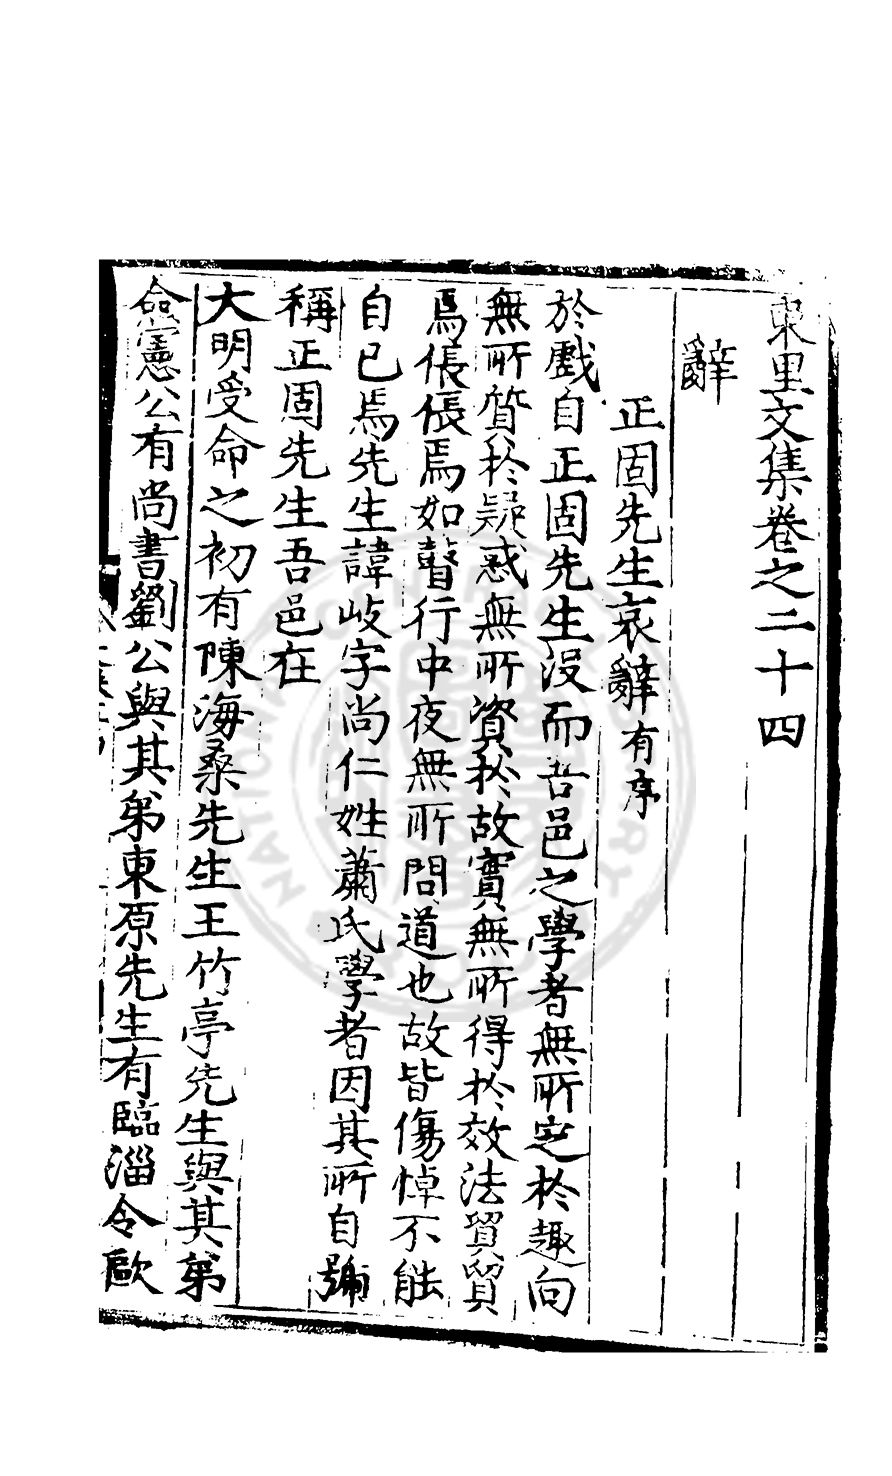 東里文集卷之二十四
辭
正固先生哀辭有序
於戲自正固先生沒而吾邑之學者無所定於趣向
無所質於疑惑無所資於故實無所得於效法貿貿
焉倀倀焉如瞽行中夜無所問道也故皆傷悼不能
自已焉先生諱岐字尚仁姓蕭氏學者因其所自號
稱正固先生吾邑在
大明受命之初有陳海桑先生王竹亭先生與其弟
僉憲公有尚書劉公與其弟東原先生有臨淄令歐